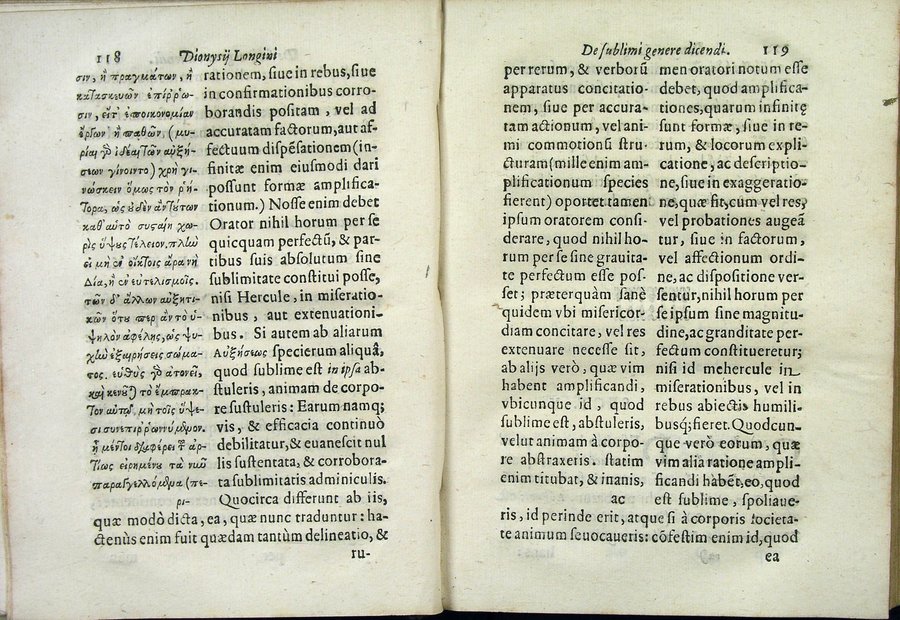 118 Dionysij Longini
σιν, ἢ πραγμάτων, ἢ
κατασκευῶν ἐπίῤῥω-
σιν, εἴτ' ἐποικονομίαν
ἔργων ἢ παθῶν, (μυ-
ρίαι γὰρ ἰδέαι τῶν αὐξή-
σεων γίνοιντο) χρὴ γι-
νώσκειν ὅμως τὸν ῥή-
τορα, ὡς οὐδὲν ἂν τούτων
καθ' αὑτὸ συσταίη χω-
ρὶς ὕψους τέλειον. πλὴν
εἰ μὴ ἐν οἴκτοις ἄρα νὴ
Δία, ἢ ἐν εὐτελισμοῖς.
τῶν δ' ἄλλων αὐξητι-
κῶν ὅτου περ ἂν τὸ ὑ-
ψηλὸν ἀφέλῃς, ὡς ψυ-
χὴν ἐξαιρήσεις σώμα-
τος. εὐθὺς γὰρ ἀτονεῖ,
καὶ κενοῦται τὸ ἔμπρακ-
τον αὐτῶν μὴ τοῖς ὕψε-
σι συνεπιῤῥωννύμενον.
ᾗ μέντοι διαφέρει τῶν ἀρ-
τίως εἰρημένων τὰ νῦν
παραγγελλόμενα (πε-
ρι-
rationem, siue in rebus, siue
in confirmationibus corro-
borandis positam, vel ad
accuratam factorum, aut af-
fectuum dispēsationem (in-
finitæ enim eiusmodi dari
possunt formæ amplifica-
tionum.) Nosse enim debet
Orator nihil horum per se
quicquam perfectū, & par-
tibus suis absolutum sine
sublimitate constitui posse,
nisi Hercule, in miseratio-
nibus, aut extenuationi-
bus. Si autem ab aliarum
Αὐξήσεως specierum aliquâ,
quod sublime est in ipsa ab-
stuleris, animam de corpo-
re sustuleris: Earum namq;
vis, & efficacia continuò
debilitatur, & euanescit nul
lis sustentata, & corrobora-
ta sublimitatis adminiculis.
Quocirca differunt ab iis,
quæ modò dicta, ea, quæ nunc traduntur: ha-
ctenùs enim fuit quædam tantùm delineatio, &
ru-
De sublimi genere dicendi. 119
per rerum, & verborū
apparatus concitatio-
nem, siue per accura-
tam actionum, vel ani-
mi commotionū stru-
cturam (mille enim am-
plificationum species
fierent) oportet tamen
ipsum oratorem consi-
derare, quod nihil ho-
rum per se sine grauita-
te perfectum esse pos-
set; præterquàm sanè
quidem vbi misericor-
diam concitare, vel res
extenuare necesse sit,
ab alijs verò, quæ vim
habent amplificandi,
vbicunque id, quod
sublime est, abstuleris,
velut animam à corpo-
re abstraxeris. statim
enim titubat, & inanis,
ac
men oratori notum esse
debet, quod amplifica-
tiones, quarum infinitę
sunt formæ, siue in re-
rum, & locorum expli-
catione, ac descriptio-
ne, siue in exaggeratio-
ne, quæ fit, cum vel res,
vel probationes augeā
tur, siue in factorum,
vel affectionum ordi-
ne, ac dispositione ver-
sentur, nihil horum per
se ipsum sine magnitu-
dine, ac granditate per-
fectum constitueretur;
nisi id mehercule in
miserationibus, vel in
rebus abiectis humili-
busq; fieret. Quodcun-
que verò eorum, quæ
vim alia ratione ampli-
ficandi habēt, eo, quod
est sublime, spoliaue-
ris, id perinde erit, atque si à corporis societa-
te animum seuocaueris: cōfestim enim id, quod
ea